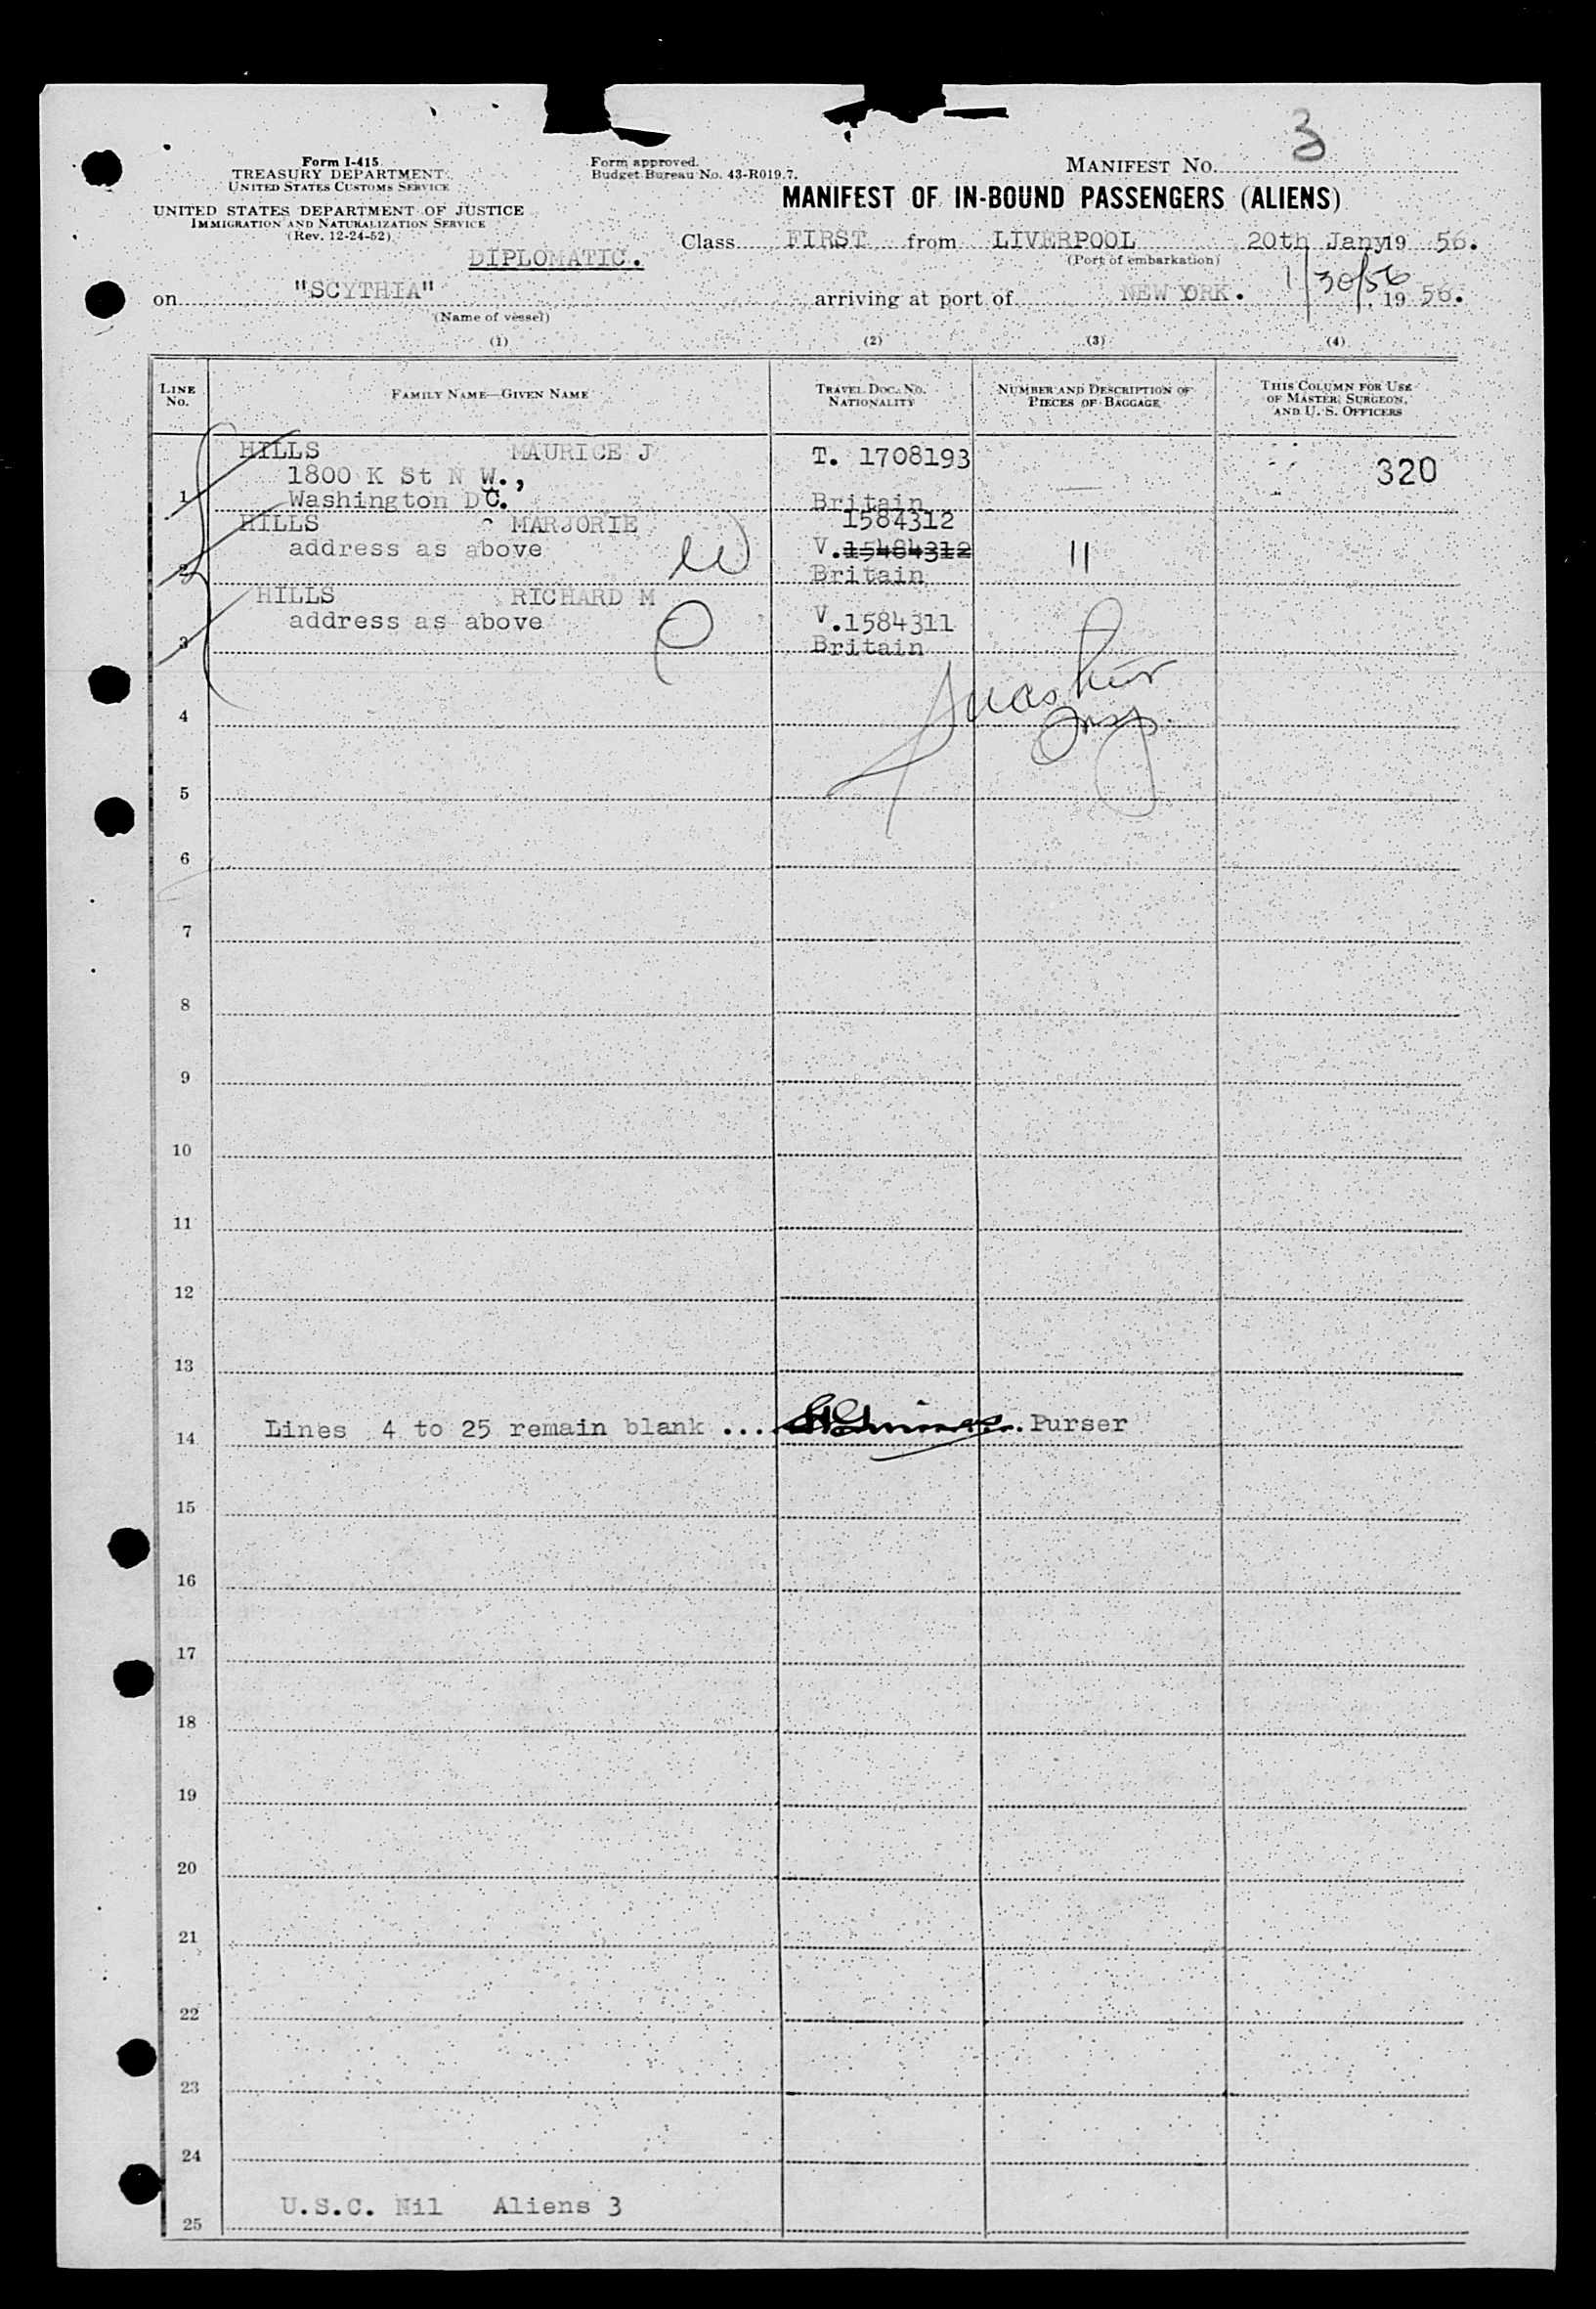 3
Form I-415
TREASURY DEPARTMENT
UNITED STATES CUSTOMS SERVICE
UNITED STATES DEPARTMENT OF JUSTICE
IMMIGRATION AND NATURALIZATION SERVICE
(Rev. 12-24-52)
Form approved.
Budget Bureau No. 43-R019.7.
MANIFEST NO.
MANIFEST OF IN-BOUND PASSENGERS (ALIENS)
DIPLOMATIC.
Class FIRST from LIVERPOOL 20th Jany 19 56.
(Port of embarkation)
on "SCYTHIA" arriving at port of NEW YORK. 1/30/56 19 56.
(Name of vessel)
(1) (2) (3) (4)
LINE No. FAMILY NAME—GIVEN NAME TRAVEL DOC. NO. NATIONALITY NUMBER AND DESCRIPTION OF PIECES OF BAGGAGE THIS COLUMN FOR USE OF MASTER, SURGEON, AND U. S. OFFICERS
HILLS MAURICE J T. 1708193 320
1800 K St N W.,
1 Washington DC. Britain
HILLS MARJORIE 1584312
address as above W V.15484312 11
2 Britain
HILLS RICHARD M
address as above C V.1584311
3 Britain
4 Insp.
5
6
7
8
9
10
11
12
13
14 Lines 4 to 25 remain blank ... Purser
15
16
17
18
19
20
21
22
23
24
25 U.S.C. Nil Aliens 3